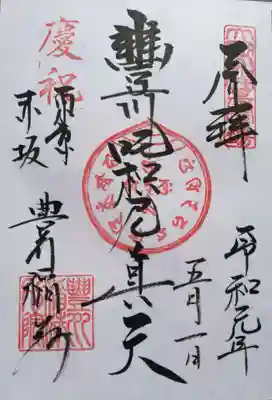 奉拝
令和元年
五月一日
豐川吒枳尼眞天
慶祝
東京
赤坂
豊川稲荷